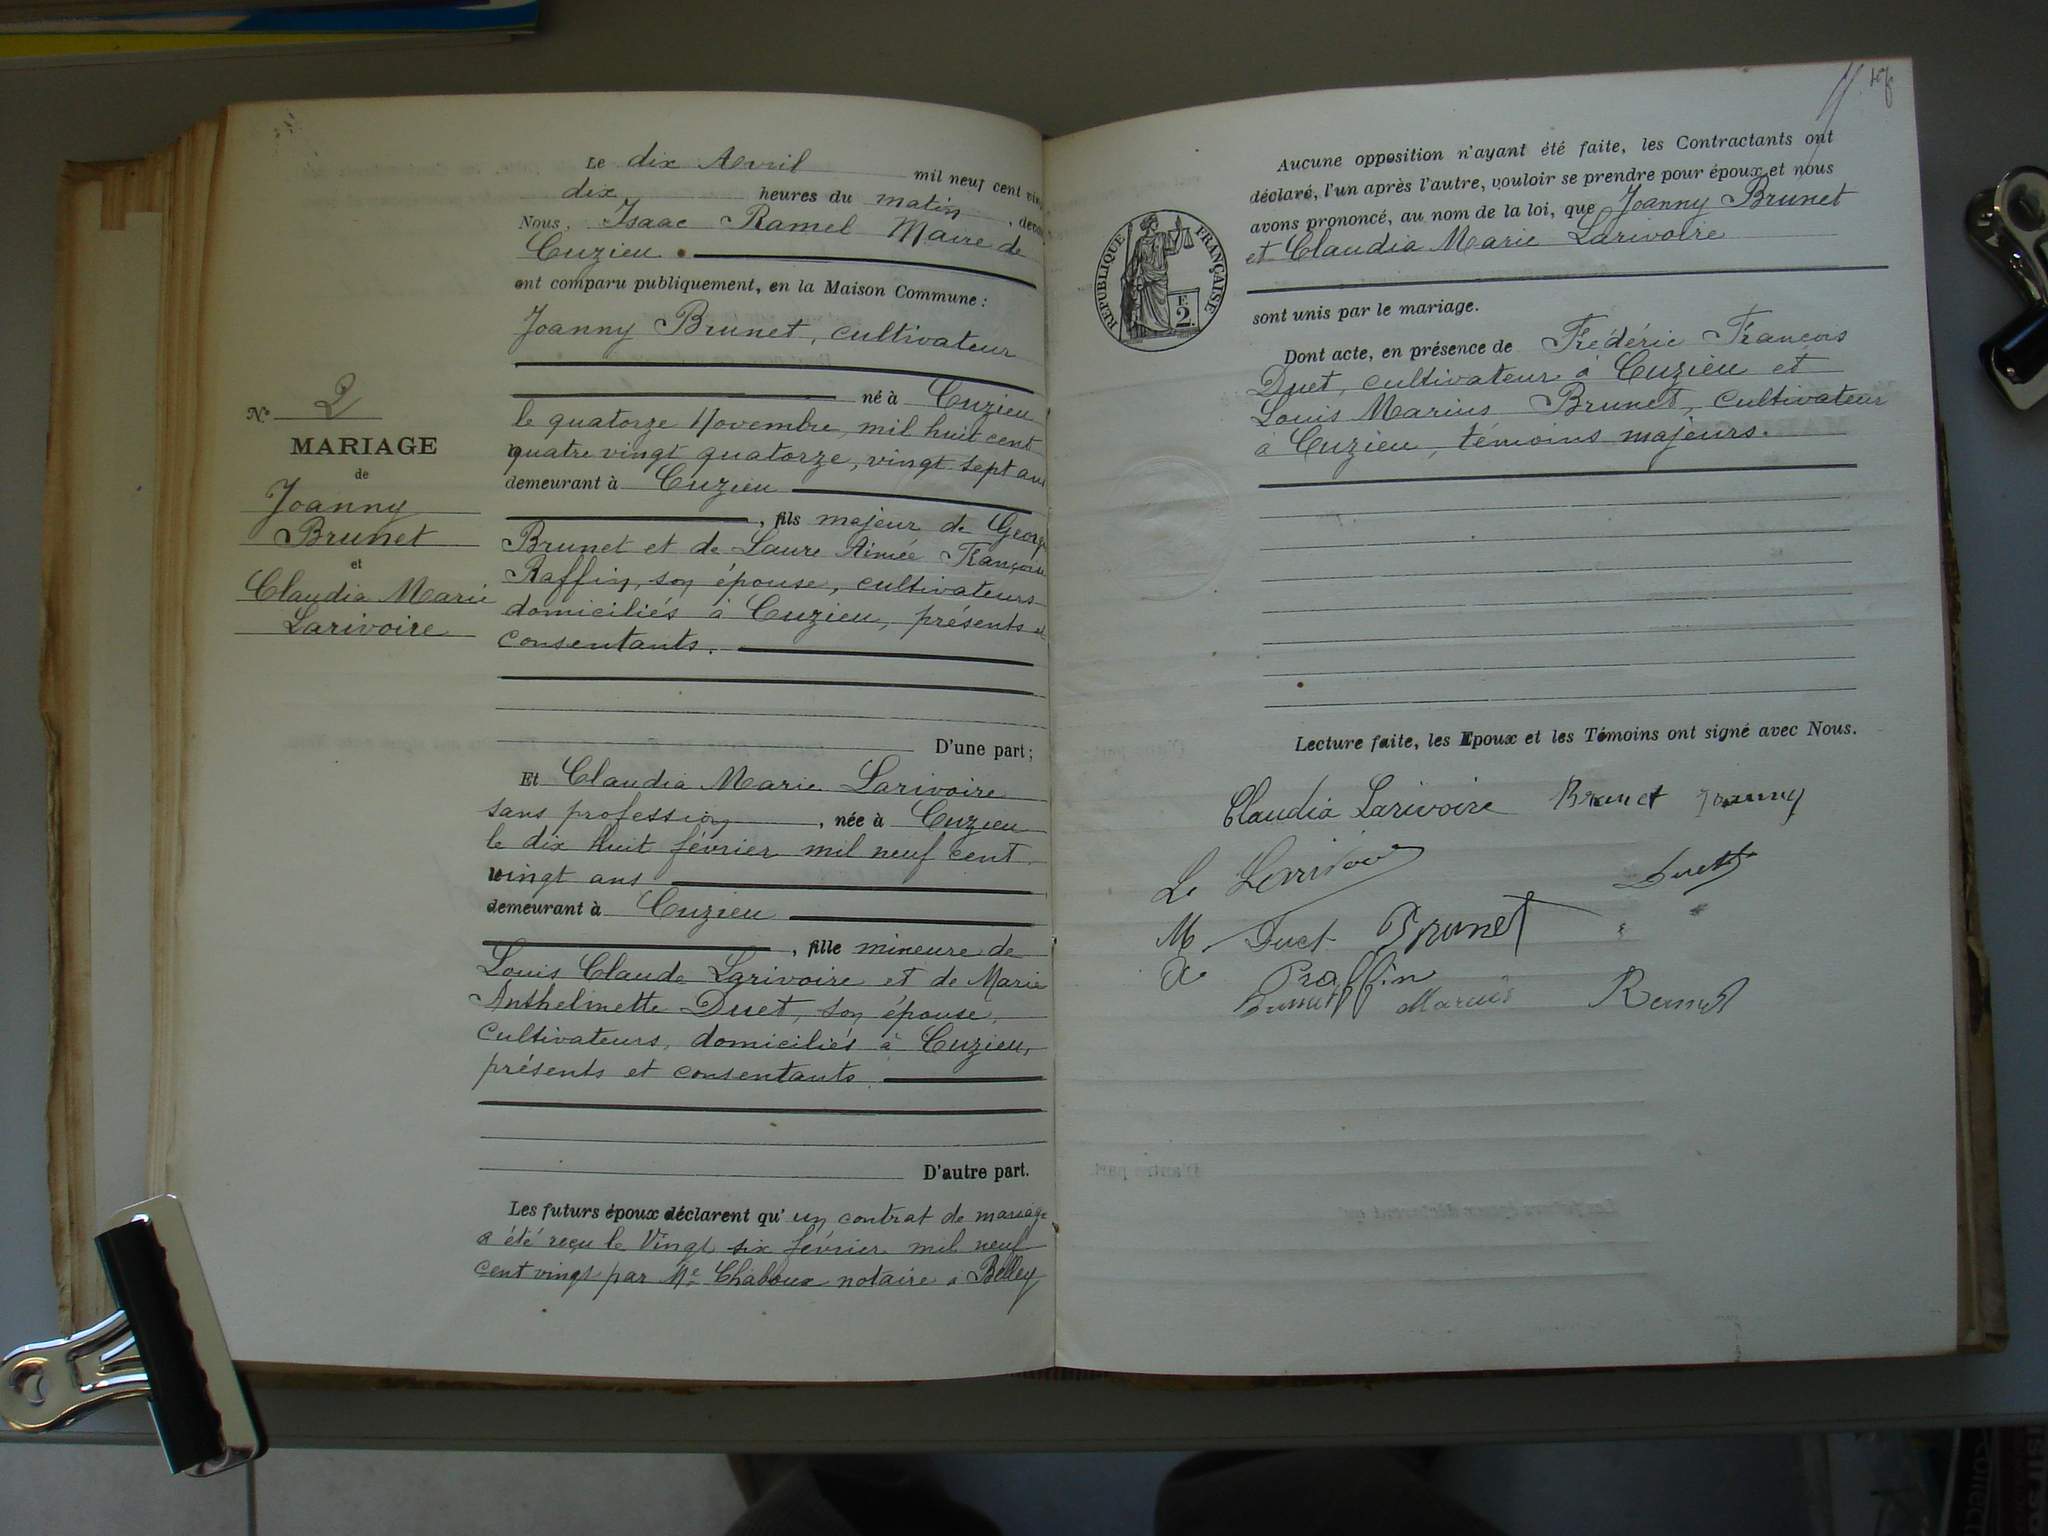 Le dix Avril mil neuf cent
dix heures du matin,
Nous, Isaac Ramel Maire de
Cuzieu
ont comparu publiquement, en la Maison Commune :
Joanny Brunet, cultivateur
né à Cuzieu
le quatorze Novembre mil huit cent
quatre vingt quatorze, vingt sept ans
demeurant à Cuzieu
, fils majeur de
Brunet et de Laure Aimée
Raffin, son épouse, cultivateurs
domiciliés à Cuzieu, présents et
consentants.
D'une part ;
Et Claudia Marie Larivoire
sans profession, née à Cuzieu
le dix huit février mil neuf cent
vingt ans
demeurant à Cuzieu
, fille mineure de
Louis Claude Larivoire et de Marie
Anthelmette Duet, son épouse,
cultivateurs, domiciliés à Cuzieu,
présents et consentants
D'autre part.
Les futurs époux déclarent qu'un contrat de mariage
a été reçu le Vingt six février mil neuf
cent vingt par Me Chaboux notaire à Belley
No 2
MARIAGE
de
Joanny
Brunet
et
Claudia Marie
Larivoire
Aucune opposition n'ayant été faite, les Contractants ont
déclaré, l'un après l'autre, vouloir se prendre pour époux et nous
avons prononcé, au nom de la loi, que Joanny Brunet
et Claudia Marie Larivoire
sont unis par le mariage.
RÉPUBLIQUE FRANÇAISE
F.
2.
Dont acte, en présence de Frédéric François
Duet, cultivateur à Cuzieu et
Louis Marius Brunet, cultivateur
à Cuzieu, témoins majeurs.
Lecture faite, les Epoux et les Témoins ont signé avec Nous.
Claudia Larivoire Brunet Joanny
Duet
M Duet Brunet
Raffin
Brunet Marius Ramel